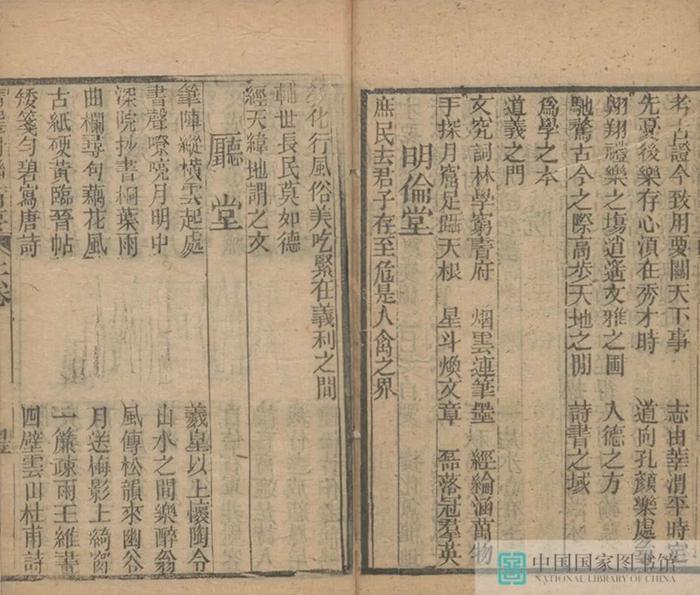 考古證今致用要關天下事　志由莘渭平時定
先憂後樂存心須在秀才時　道向孔顏樂處尋
翱翔禮樂之塲逍遙文雅之囿　入德之方
馳騖古今之際高步天地之間　詩書之域
爲學之本
道義之門
文究詞林學窮書府　烟雲蓮筆墨　經綸涵萬物
手探月窟足躡天根　星斗煥文章　磊落冠羣英
明倫堂
庶民去君子存至危是人禽之界
化行風俗美吃緊在義利之間
輔世長民莫如德
經天緯地謂之文
廳堂
筆陣縱橫雲起處　羲皇以上懷陶令
書聲嘹喨月明中　山水之間樂醉翁
深院抄書桐葉雨　風傳松韻來幽谷
曲欄尋句藕花風　月送梅影上綺窗
古紙硬黃臨晉帖　一簾疎雨王維畫
矮箋勻碧寫唐詩　四壁雲山杜甫詩
中国国家图书馆
NATIONAL LIBRARY OF CHINA